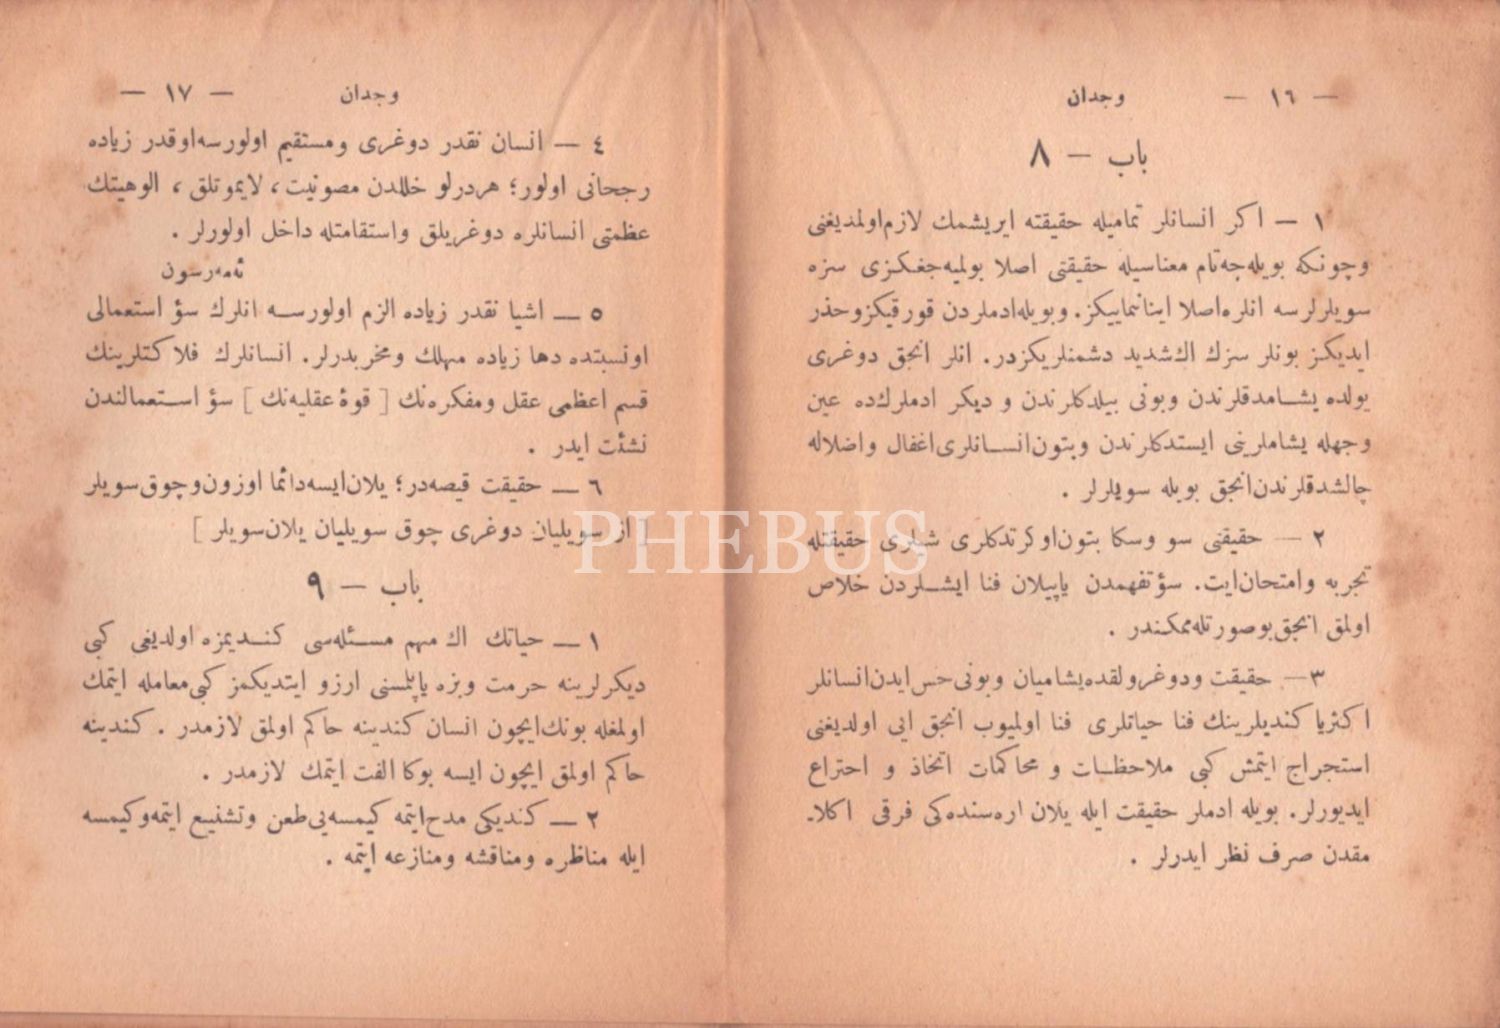 — ١٦ — وجدان
باب — ٨
١ — اكر انسانلر تماميله حقيقته ايريشمك لازم اولمديغنى
وچونكه بويله‌جه تام معناسيله حقيقتى اصلا بولميه‌جغكزى سزه
سويلرلرسه انلره اصلا اينانماييكز. وبويله ادملردن قورقيكز وحذر
ايديكز بونلر سزك اك شديد دشمنلريكزدر. انلر انجق دوغرى
يولده يشامدقلرندن وبونى بيلدكلرندن و ديكر ادملرك ده عين
وجهله يشاملرينى ايستدكلرندن وبتون انسانلرى اغفال واضلاله
چالشدقلرندن انجق بويله سويلرلر .
٢ — حقيقتى سو وسكا بتون اوكرتدكلرى شيلرى حقيقتله
تجربه وامتحان ايت. سؤ تفهمدن ياپيلان فنا ايشلردن خلاص
اولمق انجق بوصورتله ممكندر .
٣ — حقيقت ودوغرولقده يشاميان وبونى حس ايدن انسانلر
اكثريا كنديلرينك فنا حياتلرى فنا اولميوب انجق ايى اولديغنى
استجراج ايتمش كبى ملاحظات و محاكمات اتخاذ و احتراع
ايديورلر. بويله ادملر حقيقت ايله يلان اره‌سنده‌كى فرقى اكلا-
مقدن صرف نظر ايدرلر .
وجدان — ١٧ —
٤ — انسان نقدر دوغرى ومستقيم اولورسه اوقدر زياده
رجحانى اولور؛ هردرلو خللدن مصونيت، لايموتلق، الوهيتك
عظمتى انسانلره دوغريلق واستقامتله داخل اولورلر .
ئه‌مه‌رسون
٥ — اشيا نقدر زياده الزم اولورسه انلرك سؤ استعمالى
اونسبتده دها زياده مهلك ومخربدرلر. انسانلرك فلاكتلرينك
قسم اعظمى عقل ومفكره‌نك [ قوۀ عقليه‌نك ] سؤ استعمالندن
نشئت ايدر .
٦ — حقيقت قيصه‌در؛ يلان ايسه دائما اوزون وچوق سويلر
[ از سويليان دوغرى چوق سويليان يلان سويلر ]
باب — ٩
١ — حياتك اك مهم مسئله‌سى كنديمزه اولديغى كبى
ديكرلرينه حرمت وبزه ياپلسنى ارزو ايتديكمز كبى معامله ايتمك
اولمغله بونك ايچون انسان كندينه حاكم اولمق لازمدر . كندينه
حاكم اولمق ايچون ايسه بوكا الفت ايتمك لازمدر .
٢ — كنديكى مدح ايتمه كيمسه‌يى طعن وتشنيع ايتمه وكيمسه
ايله مناظره ومناقشه ومنازعه ايتمه .
PHEBUS